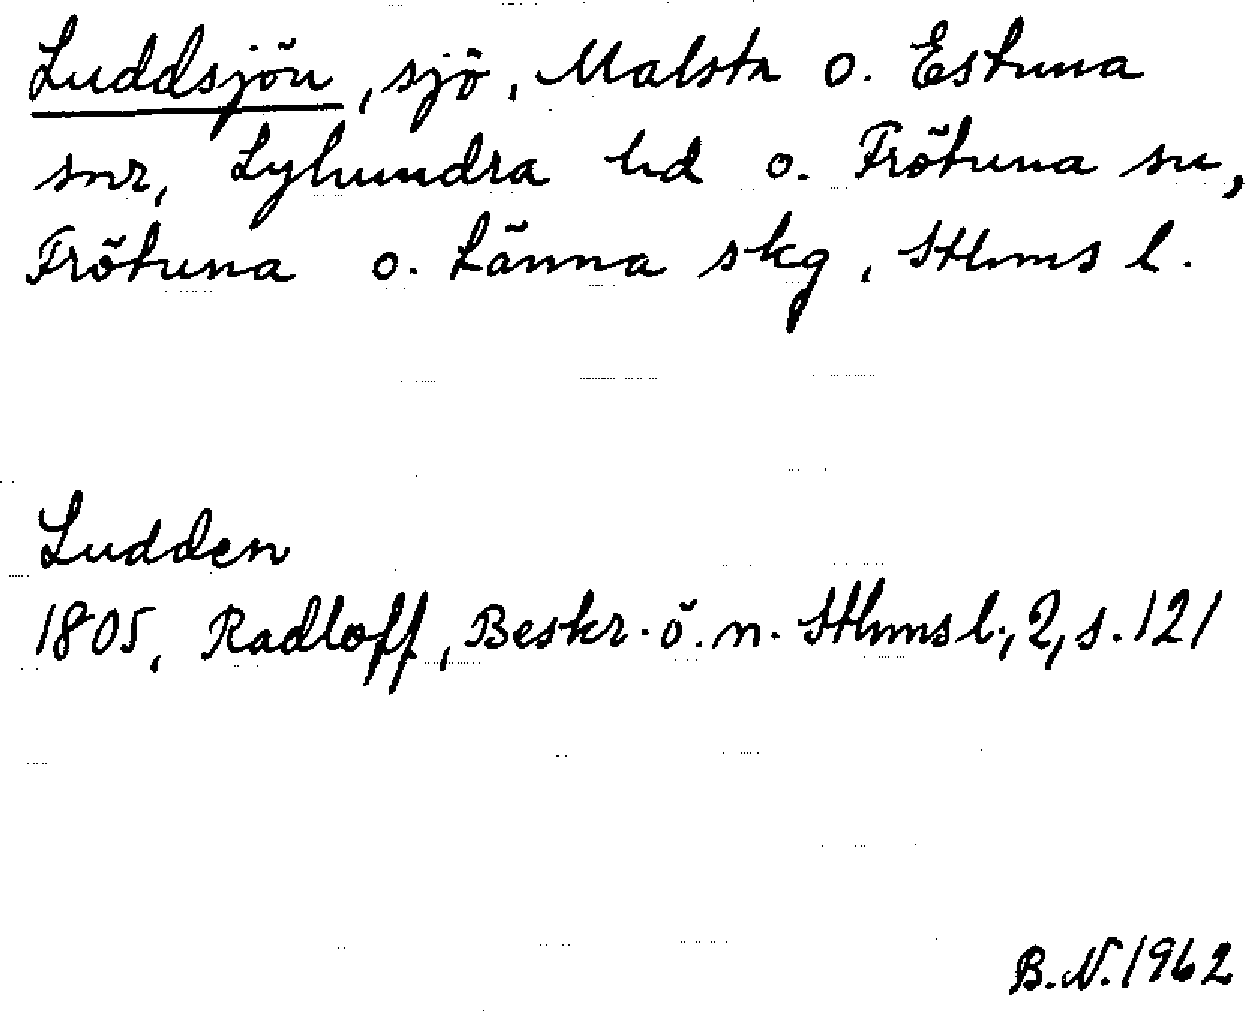 Luddsjön, sjö, Malsta o. Estuna
snr, Lyhundra hd o. Frötuna sn,
Frötuna o. Länna skg, Sthms l.
Ludden
1805, Radloff, Beskr. ö. n. Sthms l., 2, s. 121
B.N. 1962